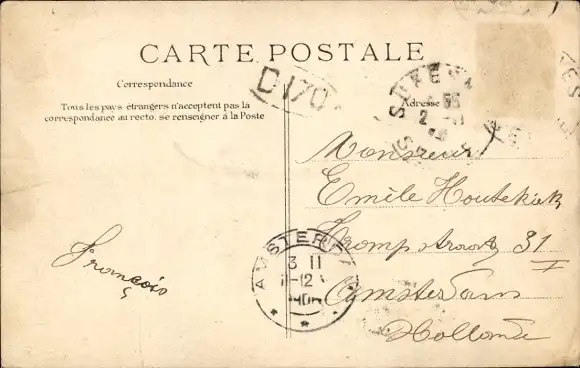 CARTE POSTALE
Correspondance
Tous les pays étrangers n'acceptent pas la
correspondance au recto. se renseigner à la Poste
D170
Adresse
2
Monsieur
Emile Houtekiek
Trompstraat 31
I
Amsterdam
Hollande
François
AMSTERDAM
3 II
11-12 V